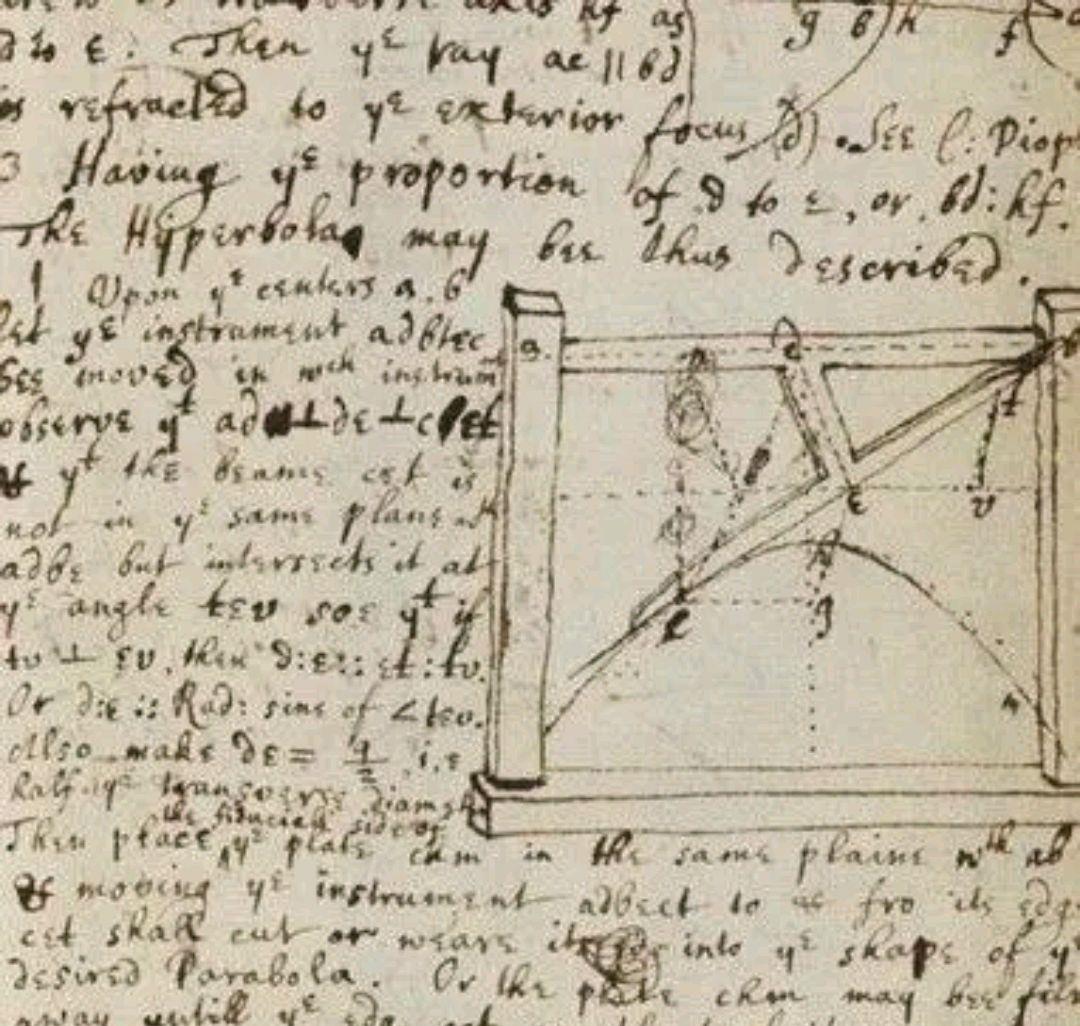 hf as
d to ε. Then yε ray ac || bd
is refracted to yε exterior focus (d). See C: Diop
3 Having yε proportion of d to ε, or, bd: hf.
The Hyperbola may bee thus described.
1 Upon yε centers a. b
let yε instrument adbtec
bee moved in wch instrum
observe yt ad ⊥ de ⊥ cet
& yt the beame cet is
not in yε same plane wth
adbe but intersects it at
yε angle tev soe yt if
tv ⊥ εv. then d:ε :: εt : tv.
Or d:ε :: Rad: sine of ∠tev.
Also make dε = q/2 . i.e
half yε transverse diam
the fiducial side of
Then place yε plate chm in the same plaine wth ab
& moving yε instrument adbect to & fro its edge
cet shall cut or weare it into yε shape of yε
desired Parabola. Or the plate chm may bee file
away untill yε edg
g b h f
a d b
t
e v
c g
m